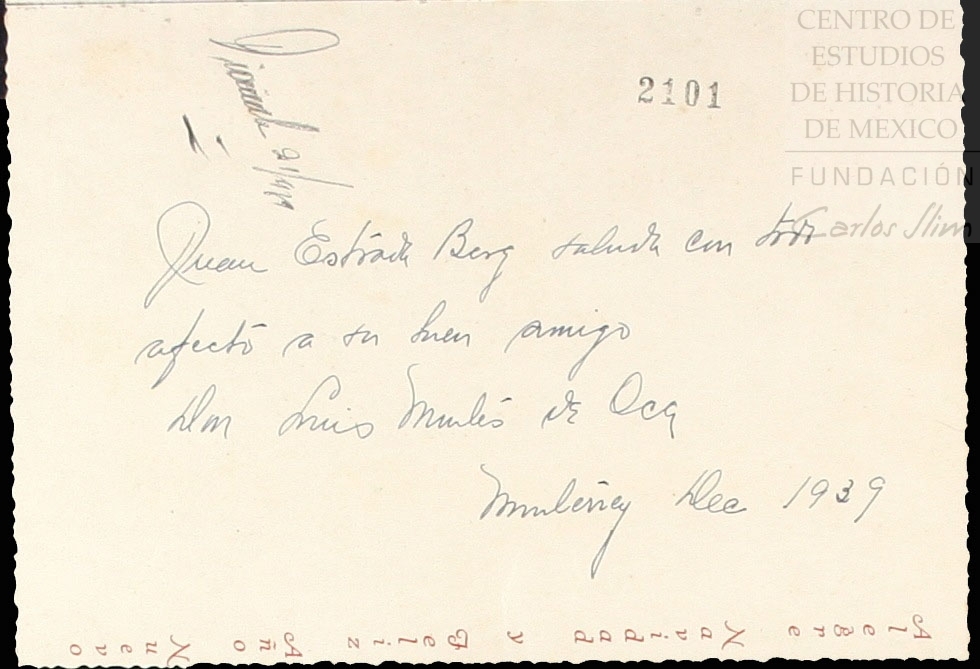 CENTRO DE
ESTUDIOS
DE HISTORIA
DE MEXICO
FUNDACIÓN
Carlos Slim
2101
21/
Juan Estrada Berg saluda con todo
afecto a su buen amigo
Don Luis Montes de Oca
Monterrey Dec 1939
Alegre Navidad y Feliz Año Nuevo